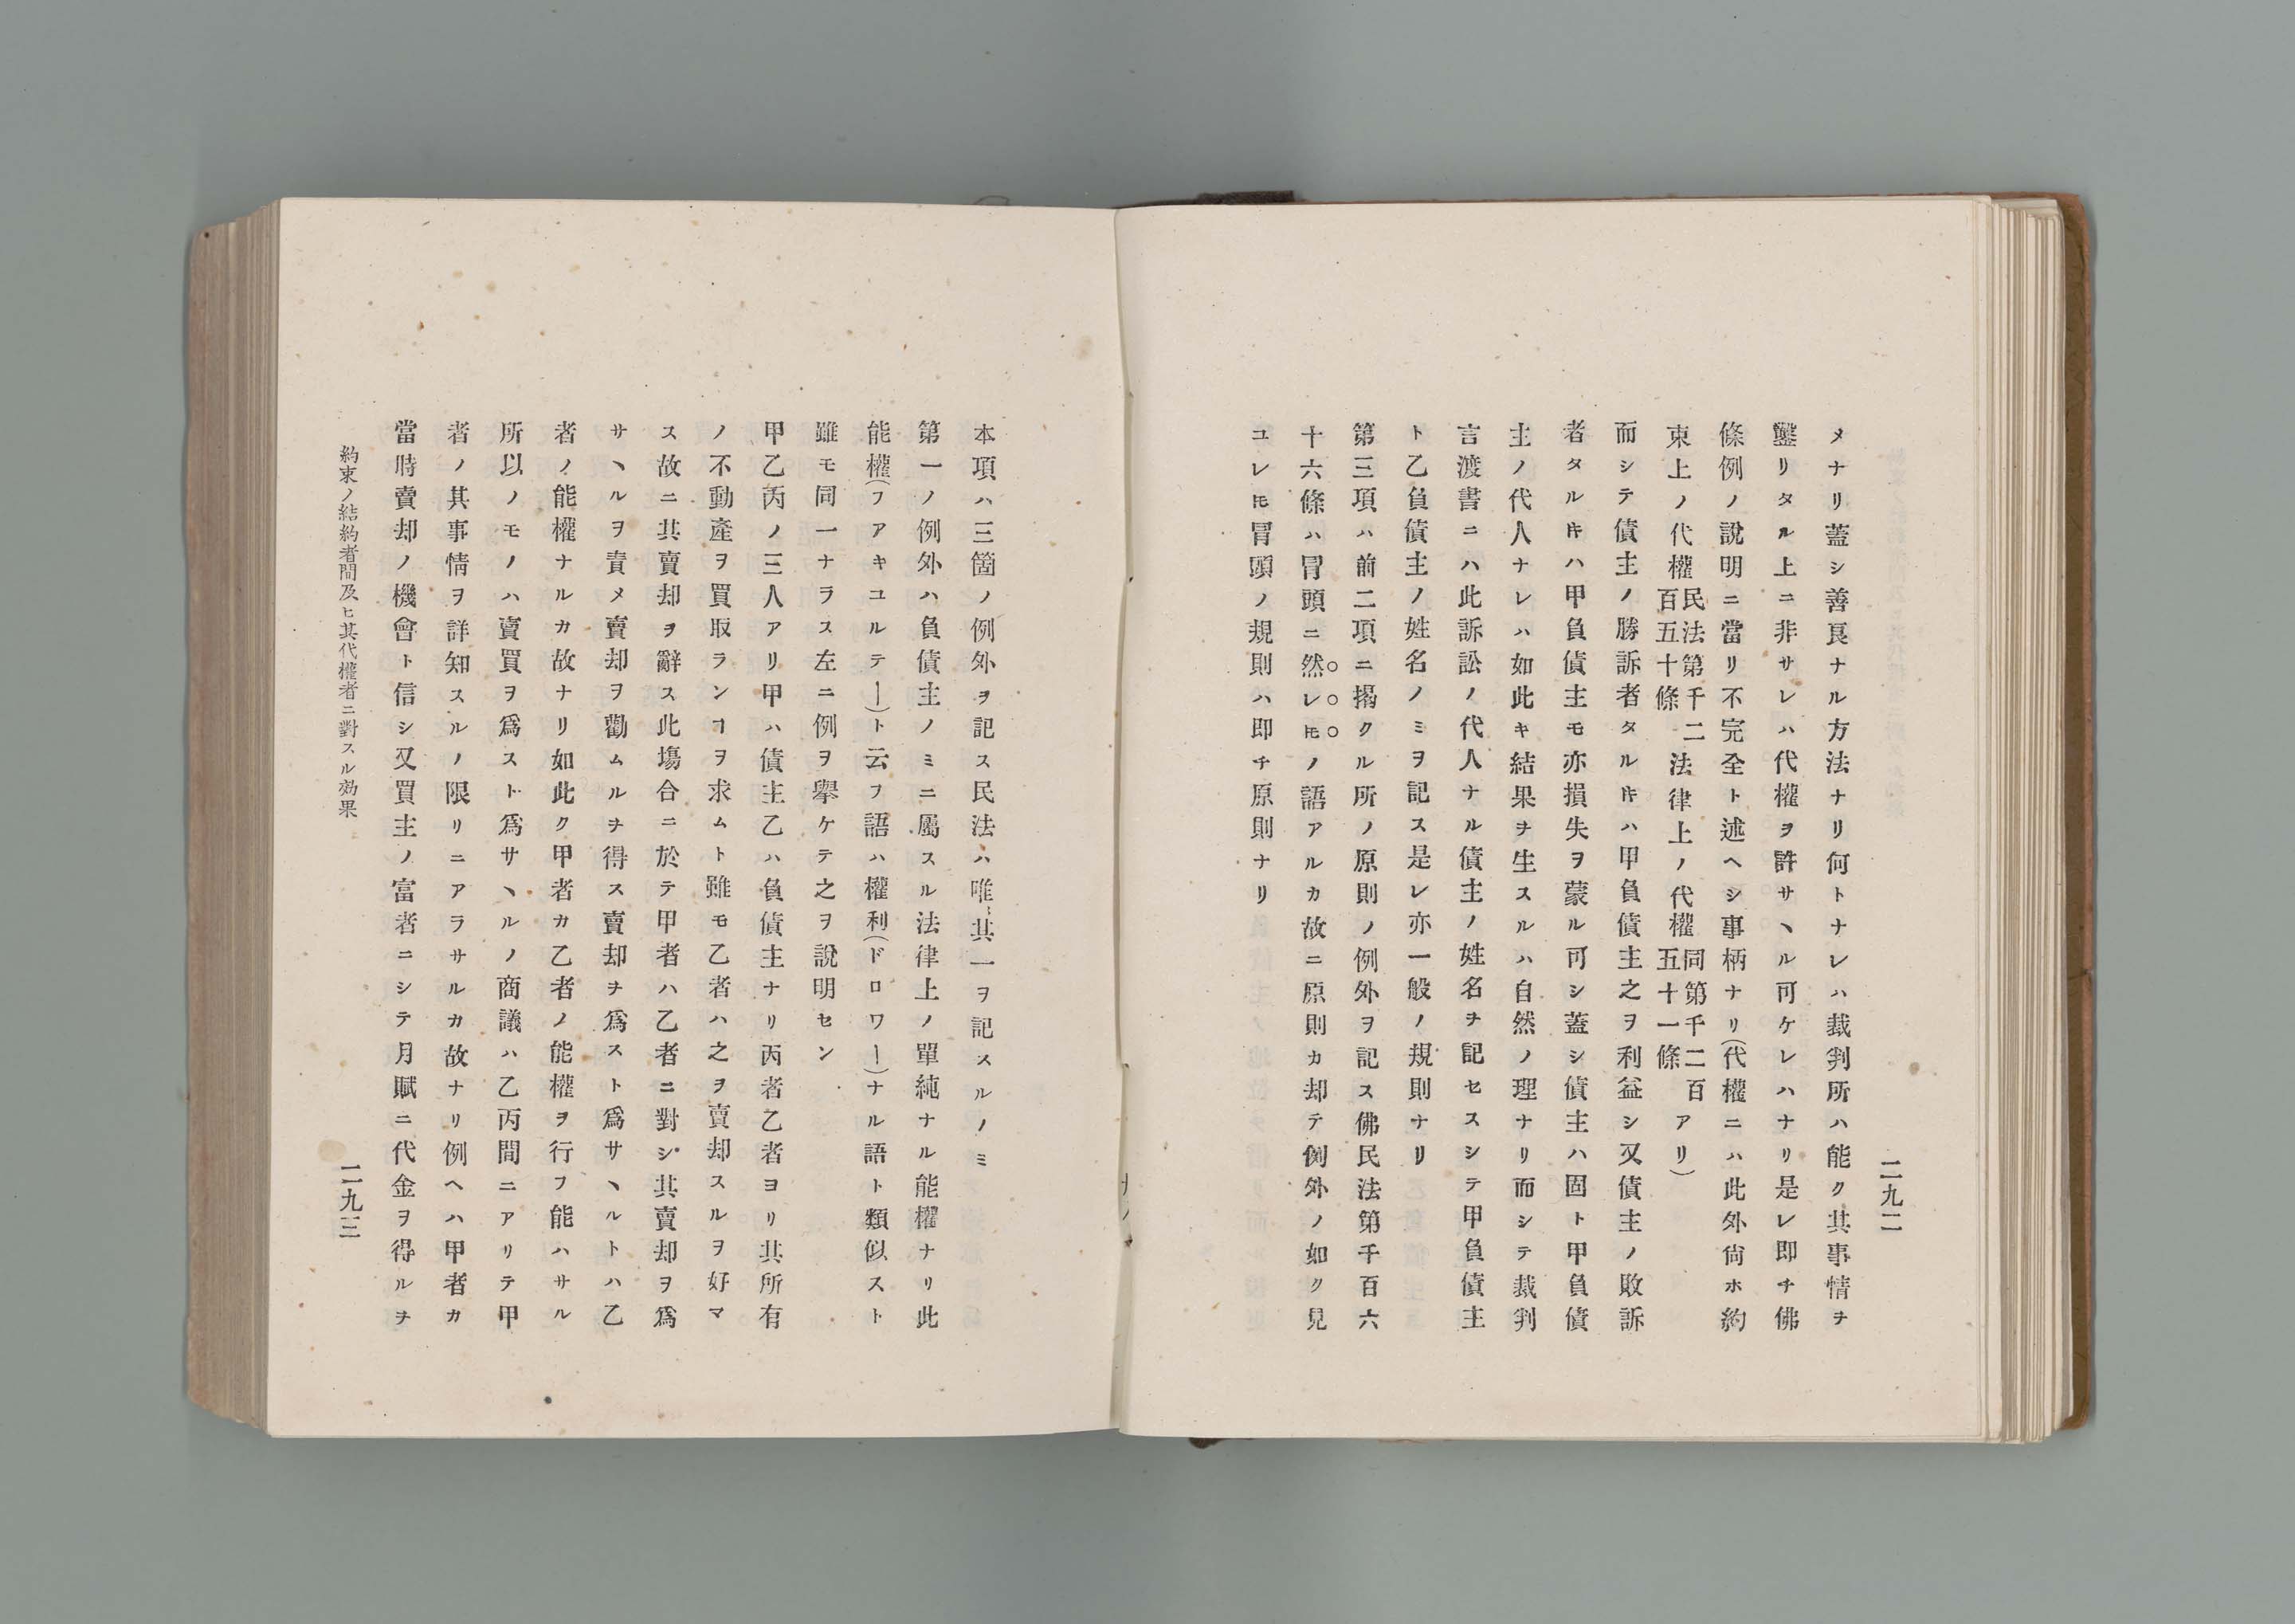 二九二
メナリ蓋シ善良ナル方法ナリ何トナレハ裁判所ハ能ク其事情ヲ
鑒リタル上ニ非サレハ代權ヲ許サヽル可ケレハナリ是レ即チ佛
條例ノ說明ニ當リ不完全ト述ヘシ事柄ナリ(代權ニハ此外尙ホ約
束上ノ代權民法第千二百五十條法律上ノ代權同第千二百五十一條アリ)
而シテ債主ノ勝訴者タルㇳキハ甲負債主之ヲ利益シ又債主ノ敗訴
者タルㇳキハ甲負債主モ亦損失ヲ蒙ル可シ蓋シ債主ハ固ト甲負債
主ノ代人ナレハ如此キ結果ヲ生スルハ自然ノ理ナリ而シテ裁判
言渡書ニハ此訴訟ノ代人ナル債主ノ姓名ヲ記セスシテ甲負債主
ト乙負債主ノ姓名ノミヲ記ス是レ亦一般ノ規則ナリ
第三項ハ前二項ニ揭クル所ノ原則ノ例外ヲ記ス佛民法第千百六
十六條ハ冒頭ニ然レㇳモノ語アルカ故ニ原則カ却テ例外ノ如ク見
ユレㇳモ冒頭ノ規則ハ即チ原則ナリ
本項ハ三箇ノ例外ヲ記ス民法ハ唯其一ヲ記スルノミ
第一ノ例外ハ負債主ノミニ屬スル法律上ノ單純ナル能權ナリ此
能權(フアキユルテー)ト云フ語ハ權利(ドロワー)ナル語ト類似スト
雖モ同一ナラス左ニ例ヲ擧ケテ之ヲ說明セン
甲乙丙ノ三人アリ甲ハ債主乙ハ負債主ナリ丙者乙者ヨリ其所有
ノ不動產ヲ買取ランヿヲ求ムト雖モ乙者ハ之ヲ賣却スルヲ好マ
ス故ニ其賣却ヲ辭ス此塲合ニ於テ甲者ハ乙者ニ對シ其賣却ヲ爲
サヽルヲ責メ賣却ヲ勸ムルヲ得ス賣却ヲ爲スト爲サヽルトハ乙
者ノ能權ナルカ故ナリ如此ク甲者カ乙者ノ能權ヲ行フ能ハサル
所以ノモノハ賣買ヲ爲スト爲サヽルノ商議ハ乙丙間ニアリテ甲
者ノ其事情ヲ詳知スルノ限リニアラサルカ故ナリ例ヘハ甲者カ
當時賣却ノ機會ト信シ又買主ノ富者ニシテ月賦ニ代金ヲ得ルヲ
約束ノ結約者間及ヒ其代權者ニ對スル効果
二九三